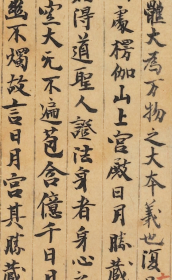 體大為万物之大本義也復
處楞伽山上宮殿日月勝藏
得道聖人證法身者身心之
空大无不遍苞含億千日月
不燭故言日月宮其勝藏